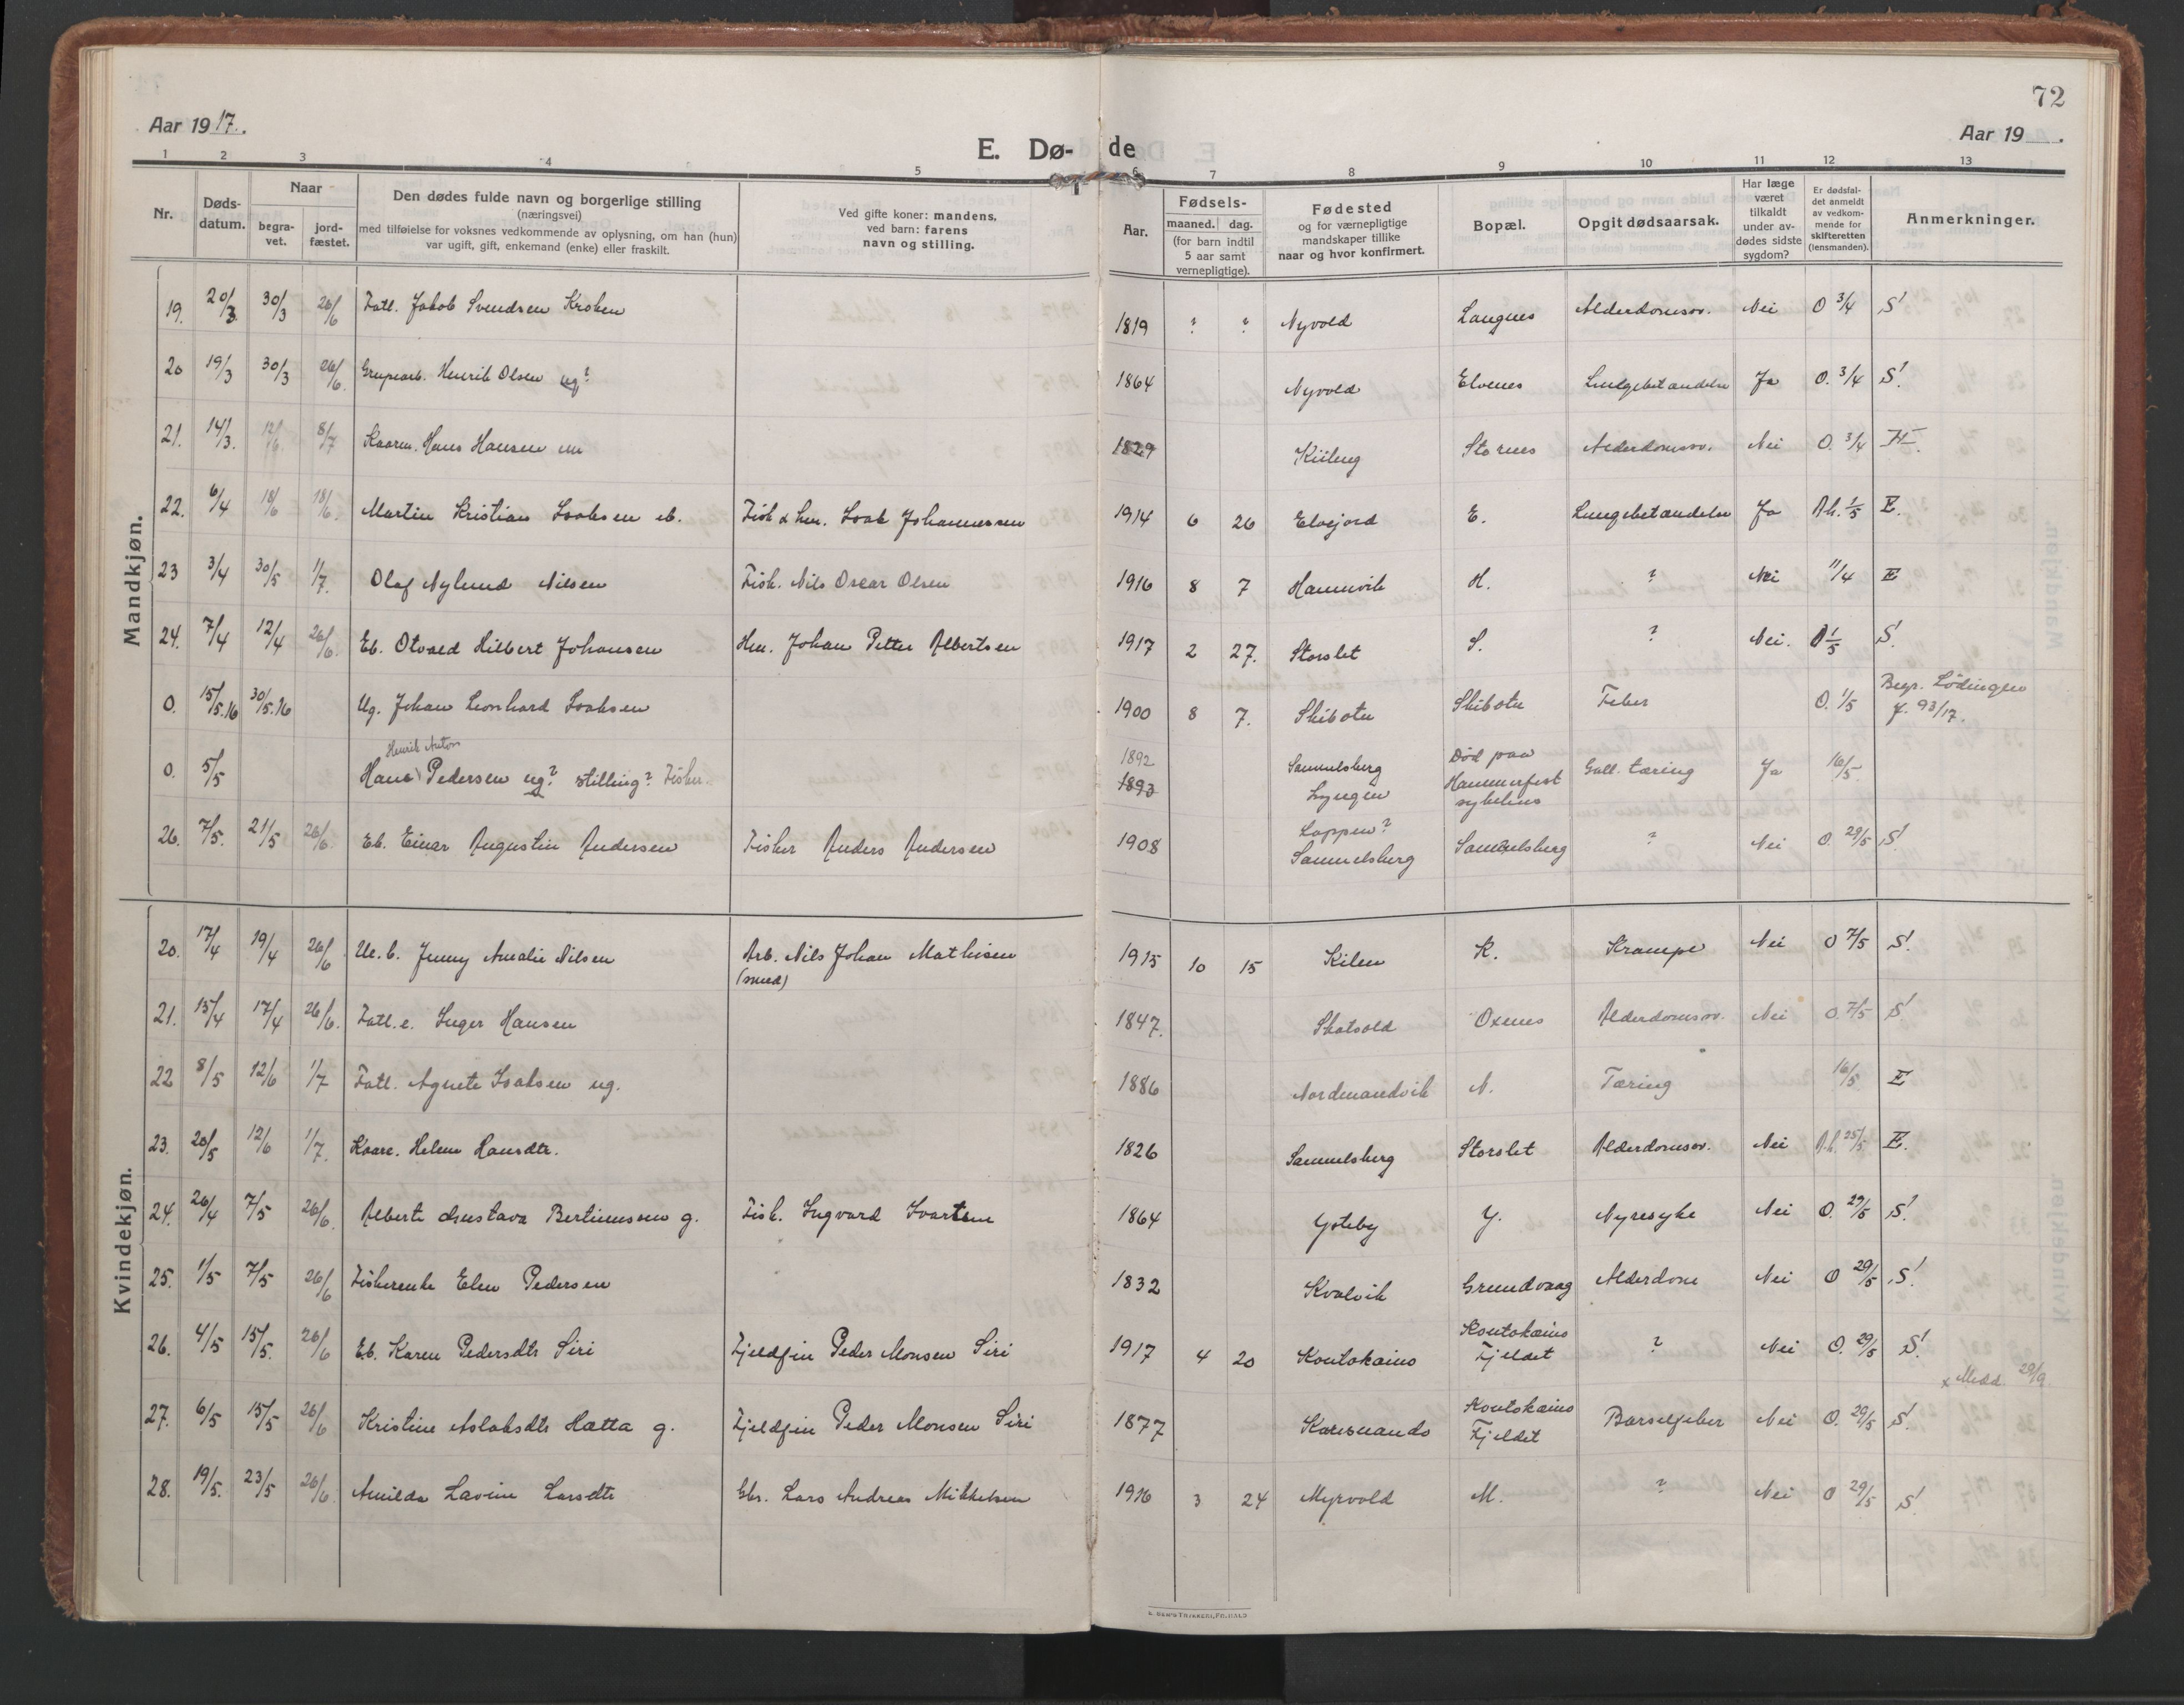 72
Aar 1917. Aar 19 .
E. Dø- de
1 2 3 4 5 6 7 8 9 10 11 12 13
Nr. Døds-datum. Naar begra-vet. jord-fæstet. Den dødes fulde navn og borgerlige stilling (næringsvei) med tilføielse for voksnes vedkommende av oplysning, om han (hun) var ugift, gift, enkemand (enke) eller fraskilt. Ved gifte koner: mandens, ved barn: farens navn og stilling. Aar. Fødsels- maaned. dag. (for barn indtil 5 aar samt vernepligtige). Fødested og for værnepligtige mandskaper tillike naar og hvor konfirmert. Bopæl. Opgit dødsaarsak. Har læge været tilkaldt under av-dødes sidste sygdom? Er dødsfal-det anmeldt av vedkom-mende for skifteretten (lensmanden). Anmerkninger.
Mandkjøn.
19. 20/3 30/3 26/6 Fatl. Jakob Svendsen Kroken 1819 ? ? Nyvold Langnes Alderdomssv. Nei O 3/4 S!
20 19/3 30/3 26/6. Grupearb. Henrik Olsen ug? 1864 Nyvold Elvenes Lungebetændelse Ja O. 3/4 S!
21. 14/3. 12/6. 8/7 Kaarm. Hans Hansen em 1829 Kiileng Stornes Alderdomssv. Nei O. 3/4 E.
22. 6/4 18/6 18/6. Martin Kristian Isaksen eb. Fisk & lm. Isak Johannessen 1914 6 26 Elvejord E. Lungebetændelse Ja A.h. 1/5 E.
23 3/4 30/5 1/7. Olaf Nylund Nilsen Fisk. Nils Oscar Olsen 1916 8 7 Hannvik H. ? Nei 11/4 E
24. 7/4 12/4 26/6. Eb. Otvald Hilbert Johansen Hm. Johan Petter Albertsen 1917 2 27. Storslet S. ? Nei. O 1/5 S!
0. 15/5.16 30/5.16 Ug. Johan Leonhard Isaksen 1900 8 7. Skibotn Skibotn Feber O. 1/5 Begr. Lødingen J. 93/17.
0. 5/5 Henrik Anton
Hans Pedersen ug? stilling? Fisker. 1892 1893 Samuelsberg Lyngen Død paa Hammerfest sykehus Gall. tæring Ja 16/5
26. 7/5. 21/5 26/6. Eb. Einar Augustin Andersen Fisker Anders Andersen 1908 Loppen? Samuelsberg Samuelsberg ? Nei O. 29/5 S!
Kvindekjøn.
20. 17/4 19/4 26/6 Ue.b. Jenny Amalie Nilsen Arb. Nils Johan Mathisen (smed) 1915 10 15 Kilen K. Krampe Nei O 7/5 S!
21. 13/4 17/4 26/6. Fatl.e. Inger Hansen 1847. Skatvold Oxenes Alderdomssv. Nei O. 7/5 S!
22 8/5 12/6 1/7 Fatl. Agnete Isaksen ug. 1886 Nordmandvik N. Tæring 16/5 E
23. 20/5 12/6 1/7. Kaare. Helene Hansdtr. 1826 Samuelsberg Storslet Alderdomssv. Nei A.h. 25/5 E.
24. 26/4 7/5 26/6. Alberte Gustava Bertinussen g. Fisk. Ingvard Ivartsen 1864 Ysteby Y. Nyresyke Nei O. 29/5 S!
25. 1/5 7/5 26/6 Fiskerenke Elen Pedersen 1832 Kvalvik Grundvaag Alderdom Nei O 29/5 S!
26. 4/5 15/5. 26/6 Eb. Karen Pedersdtr Siri Fjeldfin Peder Monsen Siri 1917 4 20 Koutokeino Koutokeino Fjeldet ? Nei O. 29/5 S!
x Medd. 29/9
27. 6/5 15/5 26/6 Kristine Aslaksdtr Hætta g. Fjeldfin Peder Monsen Siri 1877 Karesuando Koutokeino Fjeldet Barselfeber Nei O. 29/5 S!
28. 19/5. 23/5 26/6. Amilda Lavine Larsdtr Gbr. Lars Andreas Mikkelsen 1916 3 24 Myrvold M. ? Nei O 29/5 S!